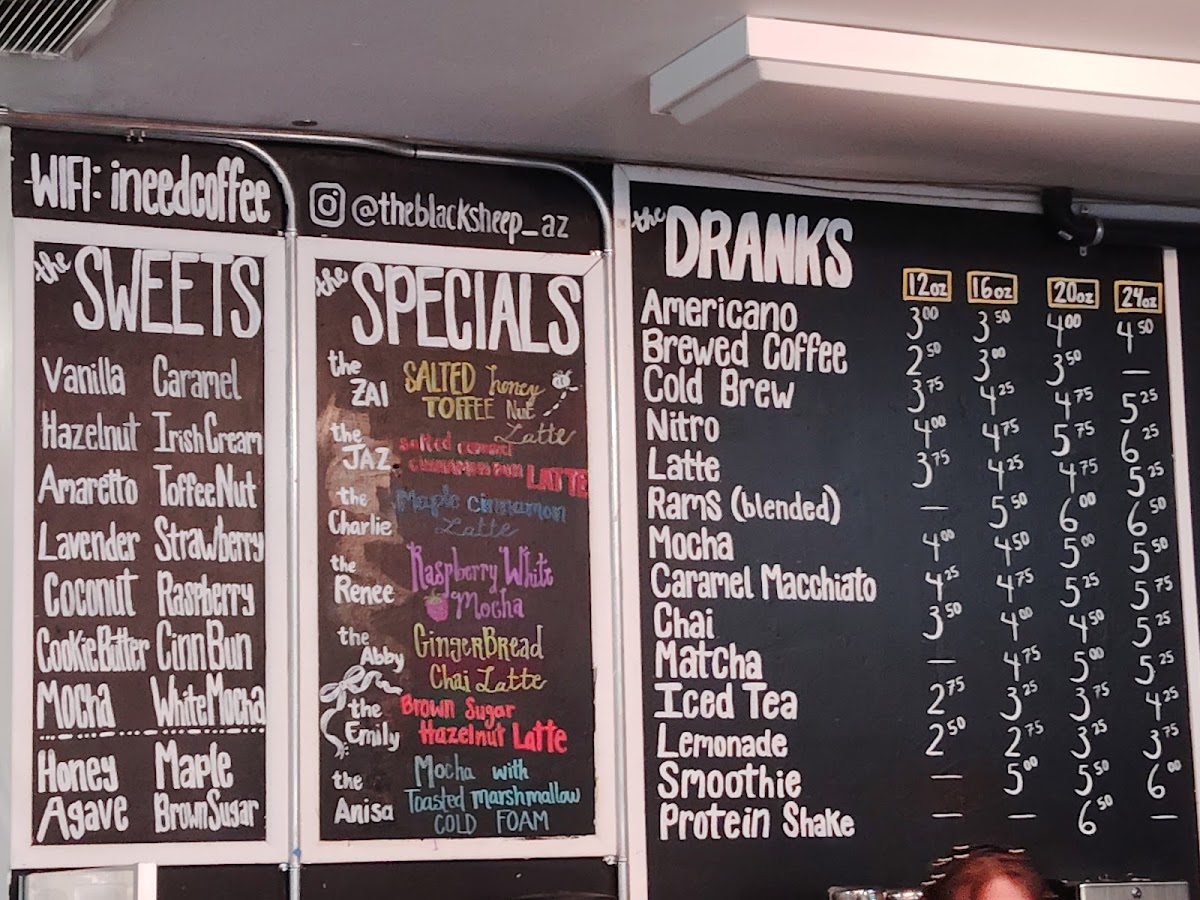 WIFI: ineedcoffee
@theblacksheep_az
the SWEETS
Vanilla Caramel
Hazelnut Irish Cream
Amaretto Toffee Nut
Lavender Strawberry
Coconut Raspberry
Cookie Butter Cinn Bun
Mocha White Mocha
Honey Maple
Agave Brown Sugar
the SPECIALS
the ZAI SALTED honey
TOFFEE Nut
Latte
the JAZ salted caramel
cinnamon bun LATTE
the Charlie Maple cinnamon
Latte
the Renee Raspberry White
Mocha
the Abby GingerBread
Chai Latte
the Emily Brown Sugar
Hazelnut Latte
the Anisa Mocha with
Toasted marshmallow
COLD FOAM
the DRANKS
12oz 16oz 20oz 24oz
Americano 3⁰⁰ 3⁵⁰ 4⁰⁰ 4⁵⁰
Brewed Coffee 2⁵⁰ 3⁰⁰ 3⁵⁰ —
Cold Brew 3⁷⁵ 4²⁵ 4⁷⁵ 5²⁵
Nitro 4⁰⁰ 4⁷⁵ 5⁷⁵ 6²⁵
Latte 3⁷⁵ 4²⁵ 4⁷⁵ 5²⁵
Rams (blended) — 5⁵⁰ 6⁰⁰ 6⁵⁰
Mocha 4⁰⁰ 4⁵⁰ 5⁰⁰ 5⁵⁰
Caramel Macchiato 4²⁵ 4⁷⁵ 5²⁵ 5⁷⁵
Chai 3⁵⁰ 4⁰⁰ 4⁵⁰ 5²⁵
Matcha — 4⁷⁵ 5⁰⁰ 5²⁵
Iced Tea 2⁷⁵ 3²⁵ 3⁷⁵ 4²⁵
Lemonade 2⁵⁰ 2⁷⁵ 3²⁵ 3⁷⁵
Smoothie — 5⁰⁰ 5⁵⁰ 6⁰⁰
Protein Shake — — 6⁵⁰ —